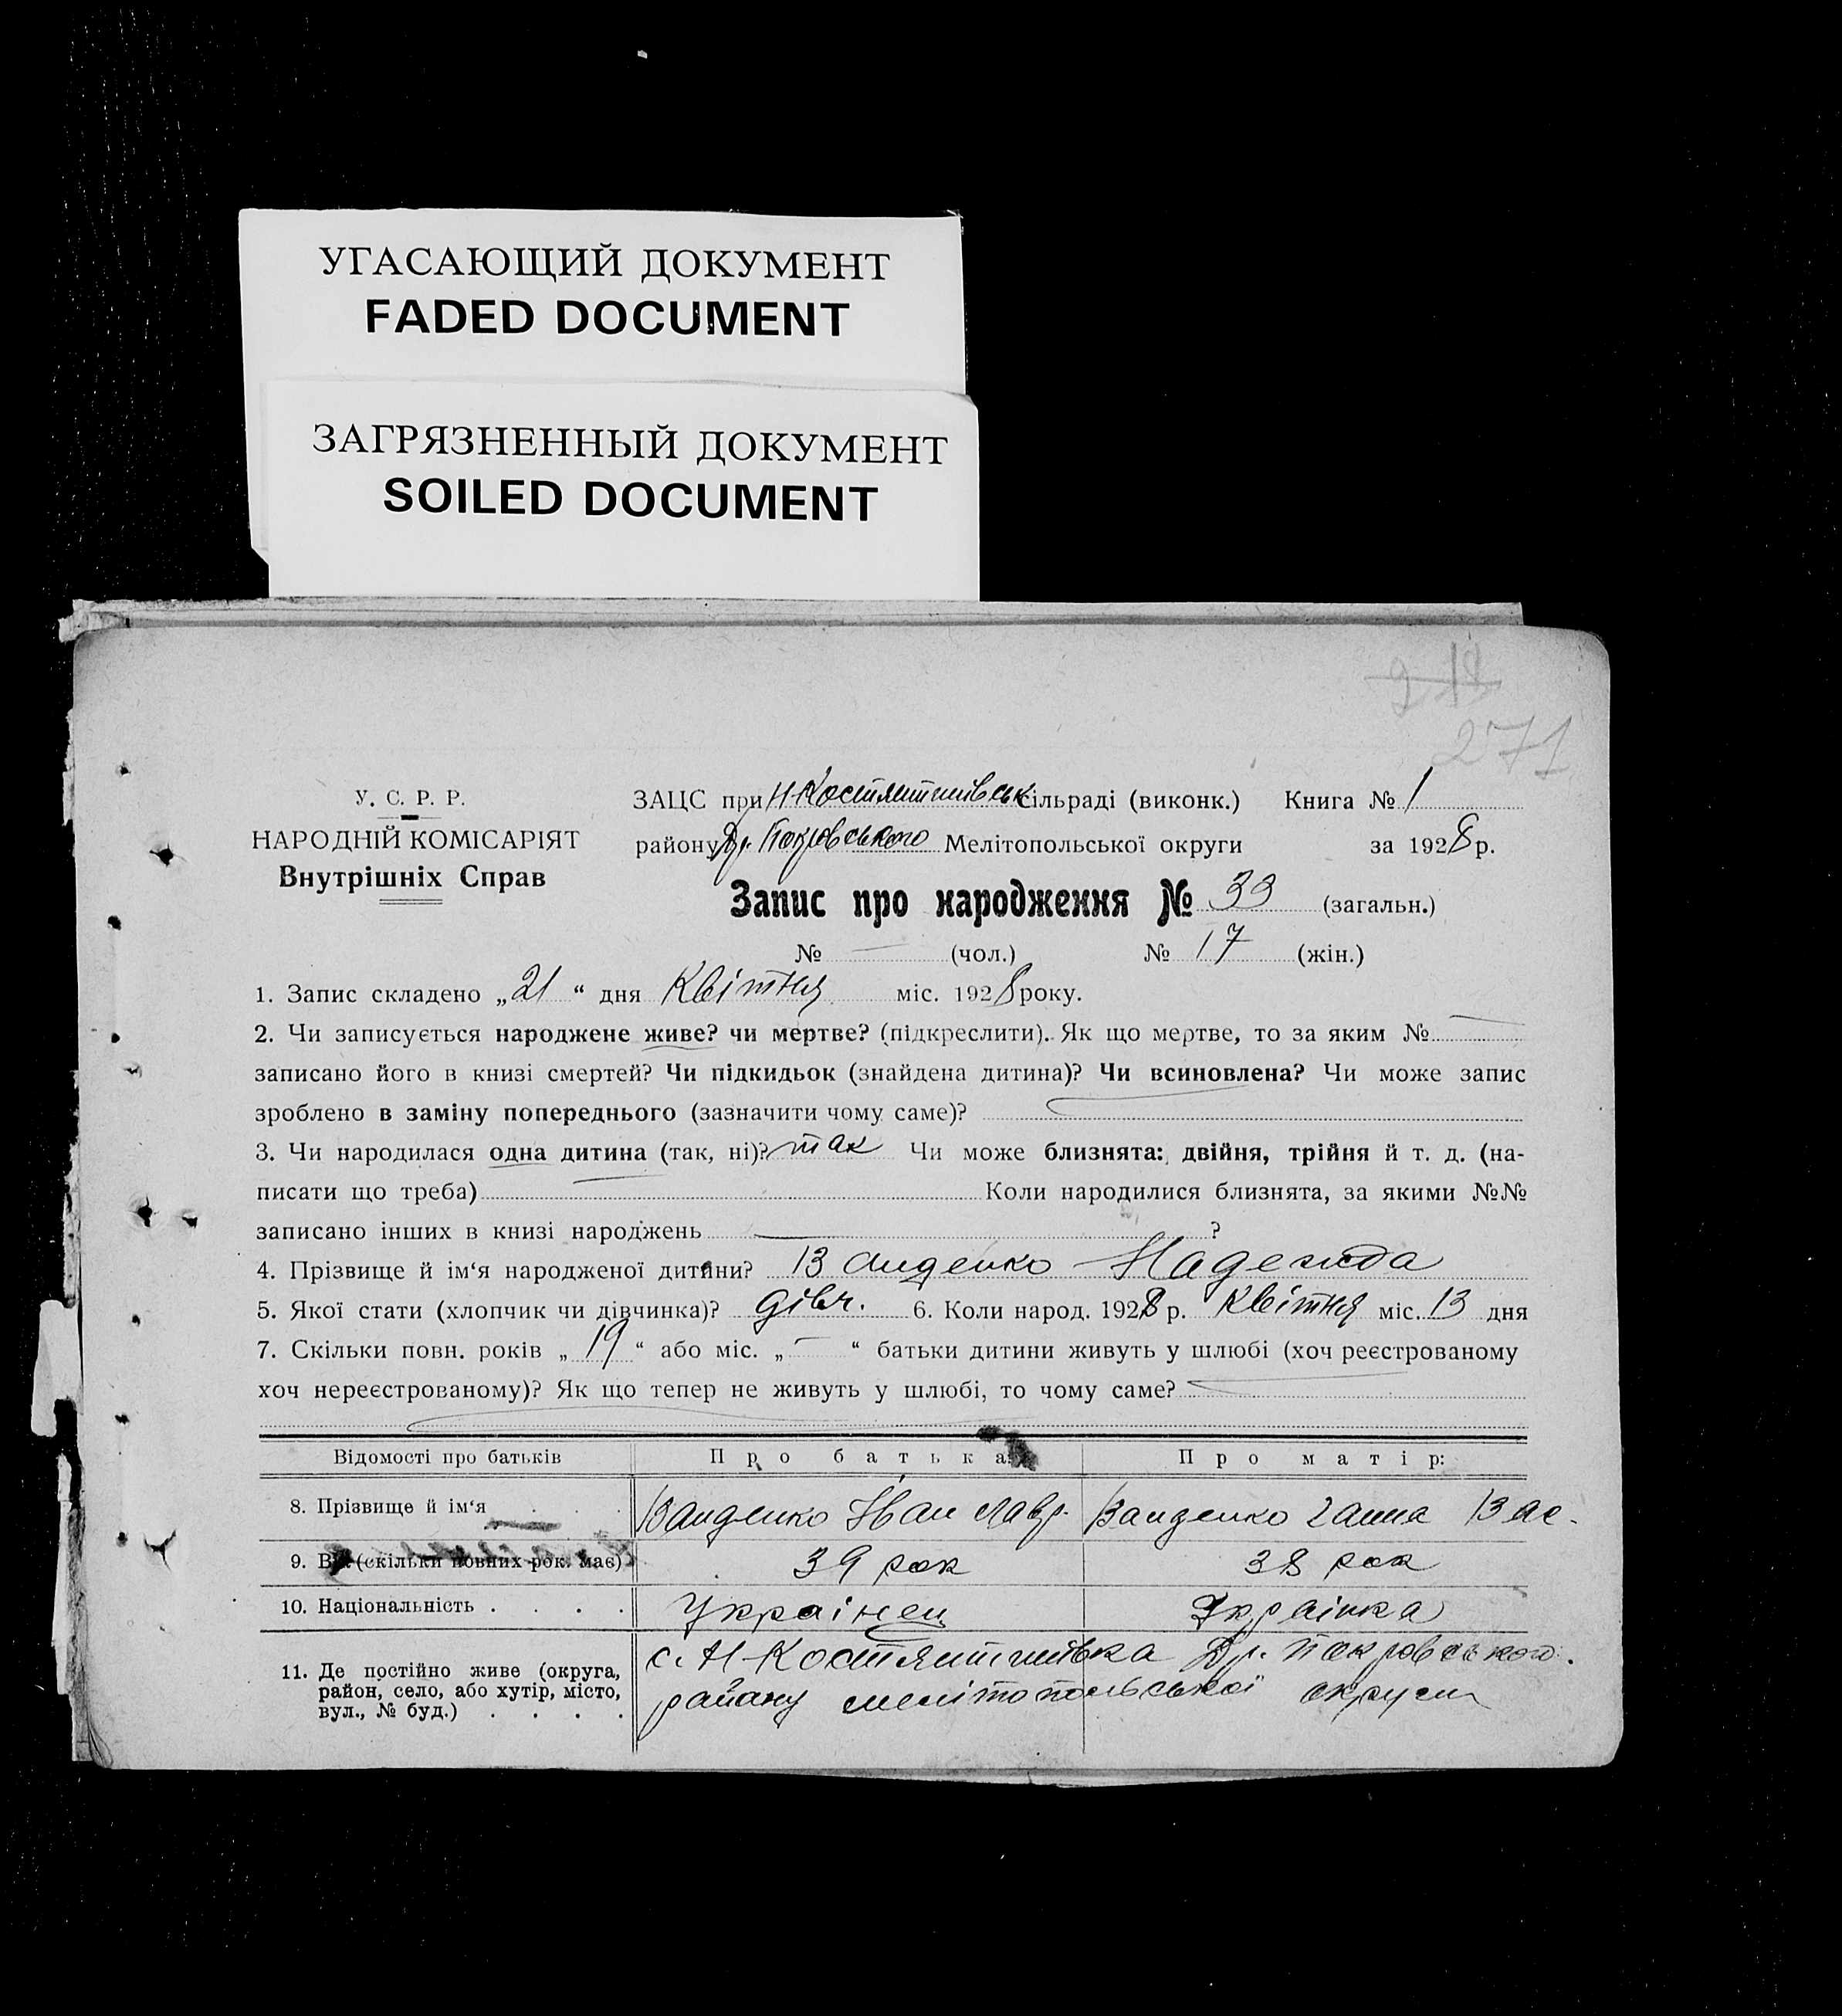 УГАСАЮЩИЙ ДОКУМЕНТ
FADED DOCUMENT
ЗАГРЯЗНЕННЫЙ ДОКУМЕНТ
SOILED DOCUMENT
218
271
У. С. Р. Р.
НАРОДНІЙ КОМІСАРІЯТ
Внутрішніх Справ
ЗАЦС при Н Костянтинівськ сільраді (виконк.) Книга № 1
району Др. Покровського Мелітопольської округи за 1928 р.
Запис про народження № 33 (загальн.)
№ — (чол.) № 17 (жін.)
1. Запис складено „21“ дня Квітня міс. 1928 року.
2. Чи записується народжене живе? чи мертве? (підкреслити). Як що мертве, то за яким № —
записано його в книзі смертей? Чи підкидьок (знайдена дитина)? Чи всиновлена? Чи може запис
зроблено в заміну попереднього (зазначити чому саме)?
3. Чи народилася одна дитина (так, ні)? так Чи може близнята: двійня, трійня й т. д. (на-
писати що треба) Коли народилися близнята, за якими №№
записано інших в книзі народжень ?
4. Прізвище й ім‘я народженої дитини? Ванденко Надежда
5. Якої стати (хлопчик чи дівчинка)? дівч. 6. Коли народ. 1928 р. Квітня міс. 13 дня
7. Скільки повн. років „19“ або міс. „—“ батьки дитини живуть у шлюбі (хоч реєстрованому
хоч нереєстрованому)? Як що тепер не живуть у шлюбі, то чому саме?
Відомості про батьків Про батька: Про матір:
8. Прізвище й ім‘я Ванденко Іван Лавр. Ванденко Ганна Вас.
9. Вік (скільки повних рок. має) 39 рок 38 рок
10. Національність . . . . Українец Українка
11. Де постійно живе (округа, район, село, або хутір, місто, вул., № буд.) . . . . с. Н-Костянтинівка Др. Покровського
району мелітопольської округи